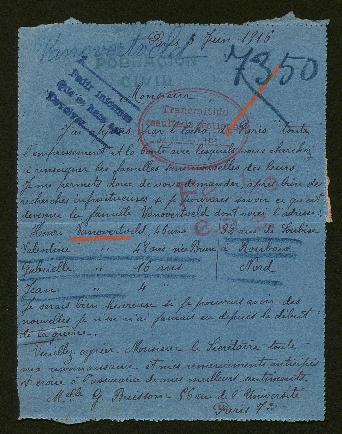 Vanovertveld
Paris 5 Juin 1916
POBLACION
CIVIL
7350
Monsieur
Transmitido
J'ai appris par l'écho de Paris toute
l'empressement et la bonté avec lesquels vous cherchez
à renseigner ces familles sans nouvelles des leurs
Je me permets donc de vous demander après bien des
recherches infructueuses si je pourrais savoir ce qu'est
devenue la famille Vanovertveld dont voici l'adresse:
Henri Vanovertveld 46 ans rue de Soubise
Valentine " 45 ans née Brun à Roubaix
Gabrielle " 16 ans Nord
Jean " 4
Je serais bien heureuse si je pouvais avoir des
nouvelles je n'en ai jamais eu depuis le début
de la guerre.
Veuillez agréer Monsieur le Secrétaire toute
ma reconnaissance et mes remerciements anticipés
et croire à l'assurance de mes meilleurs sentiments
Melle G. Buisson - 56 rue de l'Université
Paris 7e